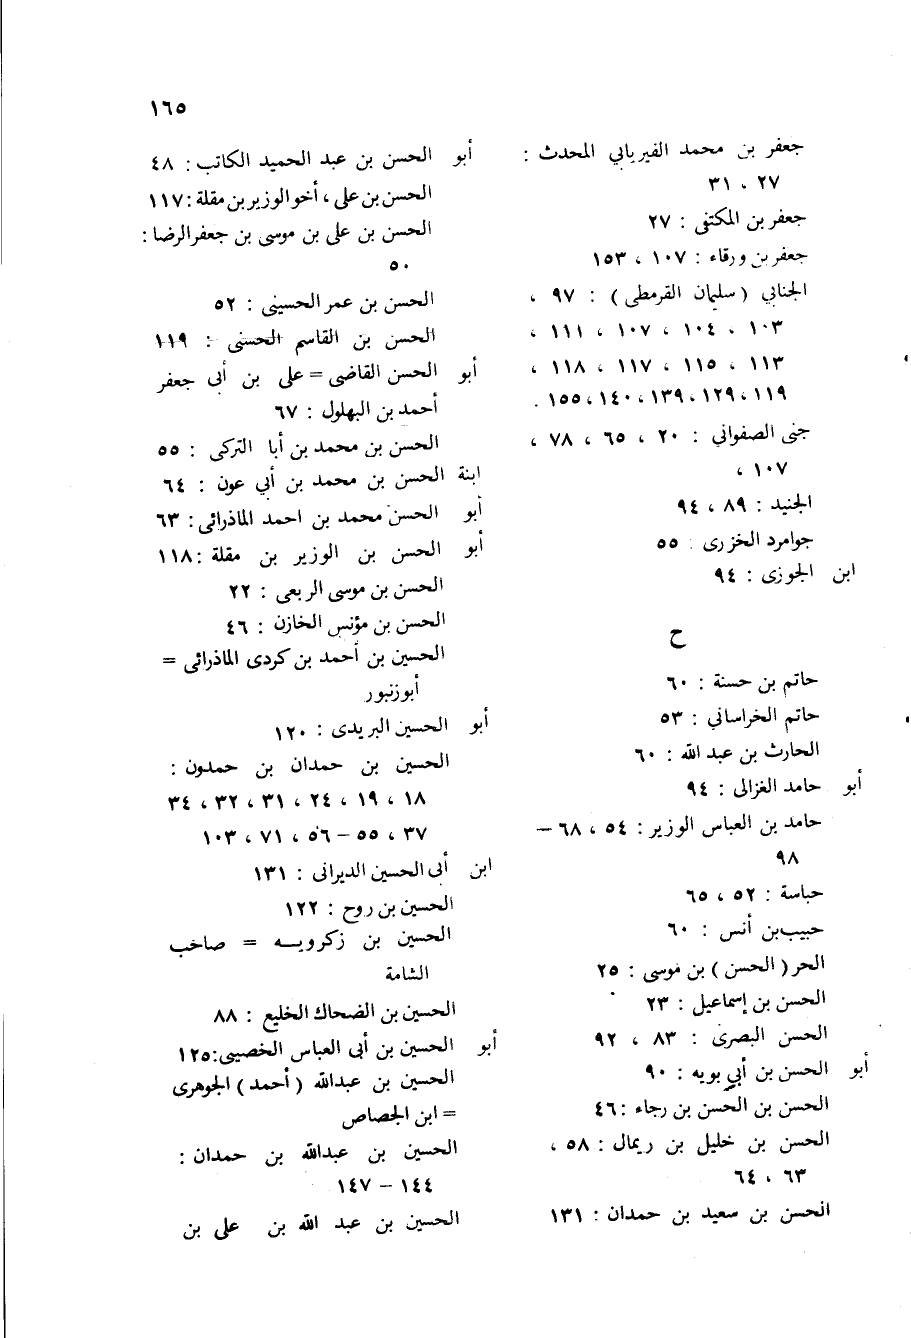 ١٦٥
جعفر بن محمد الفيريابي المحدث :
٢٧ ، ٣١
جعفر بن المكتفى : ٢٧
جعفر بن ورقاء : ١٠٧ ، ١٥٣
الجنابي (سليمان القرمطى) : ٩٧ ،
١٠٣ ، ١٠٤ ، ١٠٧ ، ١١١ ،
١١٣ ، ١١٥ ، ١١٧ ، ١١٨ ،
١١٩ ، ١٢٩ ، ١٣٩ ، ١٤٠ ، ١٥٥ .
جنى الصفواني : ٢٠ ، ٦٥ ، ٧٨ ،
١٠٧ ،
الجنيد : ٨٩ ، ٩٤
جوامرد الخزرى : ٥٥
ابن الجوزى : ٩٤
ح
حاتم بن حسنة : ٦٠
حاتم الخراساني : ٥٣
الحارث بن عبد الله : ٦٠
أبو حامد الغزالى : ٩٤
حامد بن العباس الوزير : ٥٤ ، ٦٨ –
٩٨
حباسة : ٥٢ ، ٦٥
حبيب بن أنس : ٦٠
الحر (الحسن) بن موسى : ٢٥
الحسن بن إسماعيل : ٢٣
الحسن البصرى : ٨٣ ، ٩٢
أبو الحسن بن أبي بويه : ٩٠
الحسن بن الحسن بن رجاء : ٤٦
الحسن بن خليل بن ريمال : ٥٨ ،
٦٣ ، ٦٤
الحسن بن سعيد بن حمدان : ١٣١
أبو الحسن بن عبد الحميد الكاتب : ٤٨
الحسن بن على ، أخو الوزير بن مقلة : ١١٧
الحسن بن على بن موسى بن جعفر الرضا :
٥٠
الحسن بن عمر الحسينى : ٥٢
الحسن بن القاسم الحسنى : ١١٩
أبو الحسن القاضى = على بن أبى جعفر
أحمد بن البهلول : ٦٧
الحسن بن محمد بن أبا التركى : ٥٥
ابنة الحسن بن محمد بن أبي عون : ٦٤
أبو الحسن محمد بن احمد الماذرائى : ٦٣
أبو الحسن بن الوزير بن مقلة : ١١٨
الحسن بن موسى الربعى : ٢٢
الحسن بن مؤنس الخازن : ٤٦
الحسين بن أحمد بن كردى الماذرائى =
أبو زنبور
أبو الحسين البريدى : ١٢٠
الحسين بن حمدان بن حمدون :
١٨ ، ١٩ ، ٢٤ ، ٣١ ، ٣٢ ، ٣٤
٣٧ ، ٥٥ – ٥٦ ، ٧١ ، ١٠٣
ابن أبى الحسين الديرانى : ١٣١
الحسين بن روح : ١٢٢
الحسين بن زكرويـه = صاحب
الشامة
الحسين بن الضحاك الخليع : ٨٨
أبو الحسين بن أبى العباس الخصيبى : ١٢٥
الحسين بن عبدالله (أحمد) الجوهرى
= ابن الجصاص
الحسين بن عبدالله بن حمدان :
١٤٤ – ١٤٧
الحسين بن عبد الله بن على بن